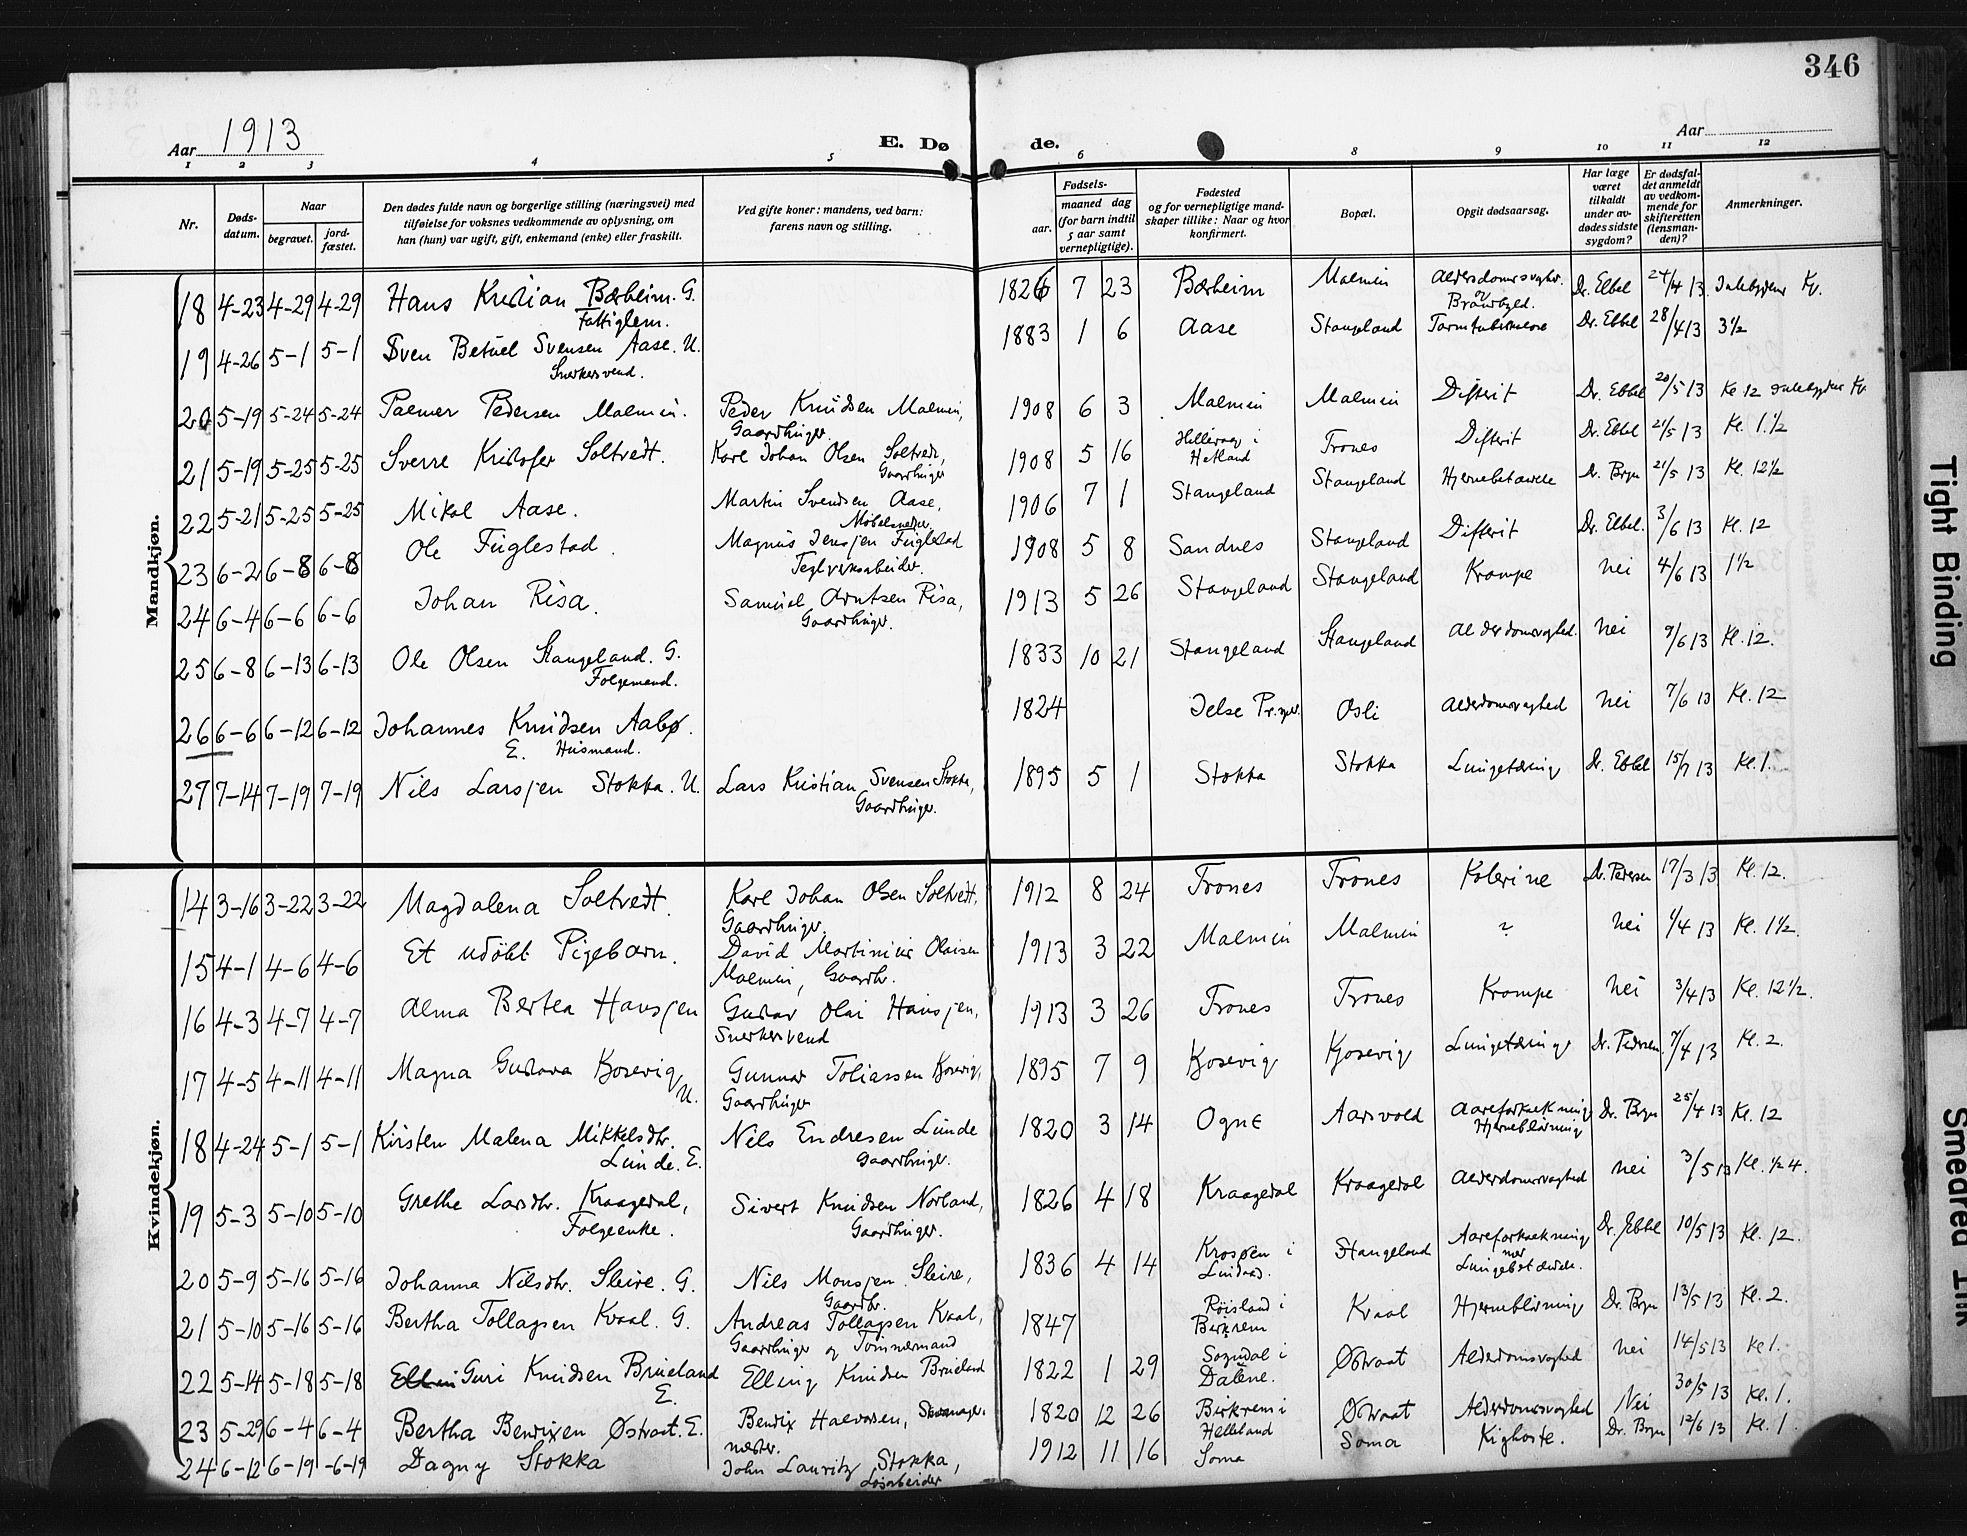 346
Aar 1913
E. Dø de.
Aar
1 2 3 4 5 6 8 9 10 11 12
Nr.
Døds-
datum.
Naar
begravet.
jord-
fæstet.
Den dødes fulde navn og borgerlige stilling (næringsvei) med
tilføielse for voksnes vedkommende av oplysning, om
han (hun) var ugift, gift, enkemand (enke) eller fraskilt.
Ved gifte koner: mandens, ved barn:
farens navn og stilling.
Fødsels-
aar.
maaned dag
(for barn indtil
5 aar samt
vernepligtige).
Fødested
og for vernepligtige mand-
skaper tillike: Naar og hvor
konfirmert.
Bopæl.
Opgit dødsaarsag.
Har læge
været
tilkaldt
under av-
dødes sidste
sygdom?
Er dødsfal-
det anmeldt
av vedkom-
mende for
skifteretten
(lensman-
den)?
Anmerkninger.
Mandkjøn.
18 4-23 4-29 4-29 Hans Kristian Bærheim. G. 1826 7 23 Bærheim Malmin Alderdomsvaghed. Dr. Ebbel 24/4 13.
Fattiglem.
19 4-26 5-1 5-1 Sven Betuel Svensen Aase. U. 1883 1 6 Aase Stangeland Tarmtuberkulose Dr. Ebbel 28/4 13 3½
Snekkersvend.
20 5-19 5-24 5-24 Palmer Pedersen Malmin. Peder Knudsen Malmin, 1908 6 3 Malmin Malmin Difterit Dr. Ebbel 20/5 13 Kl 12
Gaardbruger.
21 5-19 5-25 5-25 Sverre Kristofer Soltvedt. Karl Johan Olsen Soltvedt, 1908 5 16 Hillevaag i Hetland Trones Difterit Dr. Ebbel 21/5 13 Kl. 1.½
Gaardbruger
22 5-21 5-25 5-25 Mikal Aase. Martin Svendsen Aase, 1906 7 1 Stangeland Stangeland Hjernebetændelse Dr. Bryn 21/5 13 Kl. 12½
Møbelsnedker.
23 6-2 6-8 6-8 Ole Fuglestad. Magnus Jensen Fuglestad 1908 5 8 Sandnes Stangeland Difterit Dr. Ebbel. 3/6 13 Kl. 12
Teglverksarbeider.
24 6-4 6-6 6-6 Johan Risa. Samuel Arntsen Risa, 1913 5 26 Stangeland Stangeland Krampe nei 4/6 13 1½
Gaardbruger.
25 6-8 6-13 6-13 Ole Olsen Stangeland. G. 1833 10 21 Stangeland Stangeland Alderdomsvaghed. nei 9/6 13 Kl. 12.
Folgemand.
26 6-6 6-12 6-12 Johannes Knudsen Aabø. 1824 Jelse Pr. Osli Alderdomsvaghed nei 7/6 13 Kl. 12
E. Husmand.
27 7-14 7-19 7-19 Nils Larsen Stokka. U. Lars Kristian Svensen Stokka, 1895 5 1 Stokka Stokka Lungetæring Dr. Ebbel 15/7 13 Kl. 1
Gaardbruger.
Kvindekjøn.
14 3-16 3-22 3-22 Magdalena Soltvedt. Karl Johan Olsen Soltvedt, 1912 8 24 Trones Trones Kolerine Dr. Pedersen 17/3 13 Kl. 12.
Gaardbruger.
15 4-1 4-6 4-6 Et udøbt Pigebarn. David Martinius Olaisen 1913 3 22 Malmin Malmin ? nei 1/4 13 Kl. 1½.
Malmin, Gaardbr.
16 4-3 4-7 4-7 Alma Bertea Hansen Gustav Olai Hansen, 1913 3 26 Trones Trones Krampe nei 3/4 13 Kl. 12½.
Snekkersvend
17 4-5 4-11 4-11 Magna Gustava Kjosevig U. Gunnar Toliassen Kjosevig, 1895 7 9 Kjosevig Kjosevig Lungetæring Dr. Pedersen 7/4 13 Kl. 2.
Gaardbruger
18 4-24 5-1 5-1 Kirsten Malena Mikkelsdtr. Nils Endresen Lunde 1820 3 14 Ogne Aarsvold Aareforkalkning Dr. Bryn 25/4 13 Kl. 12
Lunde. E. Gaardbruger. Hjerneblødning
19 5-3 5-10 5-10 Grethe Larsdtr. Kraagedal, Sivert Knudsen Norland, 1826 4 18 Kraagedal Kraagedal Alderdomsvaghed nei 3/5 13 Kl. ½ 4.
Folgeenke. Gaardbruger.
20 5-9 5-16 5-16 Johanna Nilsdtr. Sleire. G. Nils Monsen Sleire, 1836 4 14 Krosøen i Lindaas. Stangeland Aareforkalkning Dr. Ebbel 10/5 13 Kl. 12.
Gaardbr. Lungebetændelse.
21 5-10 5-16 5-16 Bertha Tollagsen Kvaal. G. Andreas Tollagsen Kvaal, 1847 Røisland i Birkrem Kvaal Hjerneblødning Dr. Bryn 13/5 13 Kl. 2.
Gaardbruger og Tømmermand
22 5-14 5-18 5-18 Guri Knudsen Brueland E. Elling Knudsen Brueland 1822 1 29 Sogndal i Dalene. Østraat Alderdomsvaghed nei 14/5 13 Kl 1.
23 5-29 6-4 6-4 Bertha Bendixen Østraat. E. Bendix Halvorsen, 1820 12 26 Birkrem i Helleland Østraat Alderdomsvaghed Nei 30/5 13 Kl. 1.
24 6-12 6-19 -6-19 Dagny Stokka John Lauritz Stokka, 1912 11 16 Soma Soma Kighoste. Dr. Bryn 12/6 13 Kl. 1.
Løsarbeider
Tight Binding
Smeared Ink